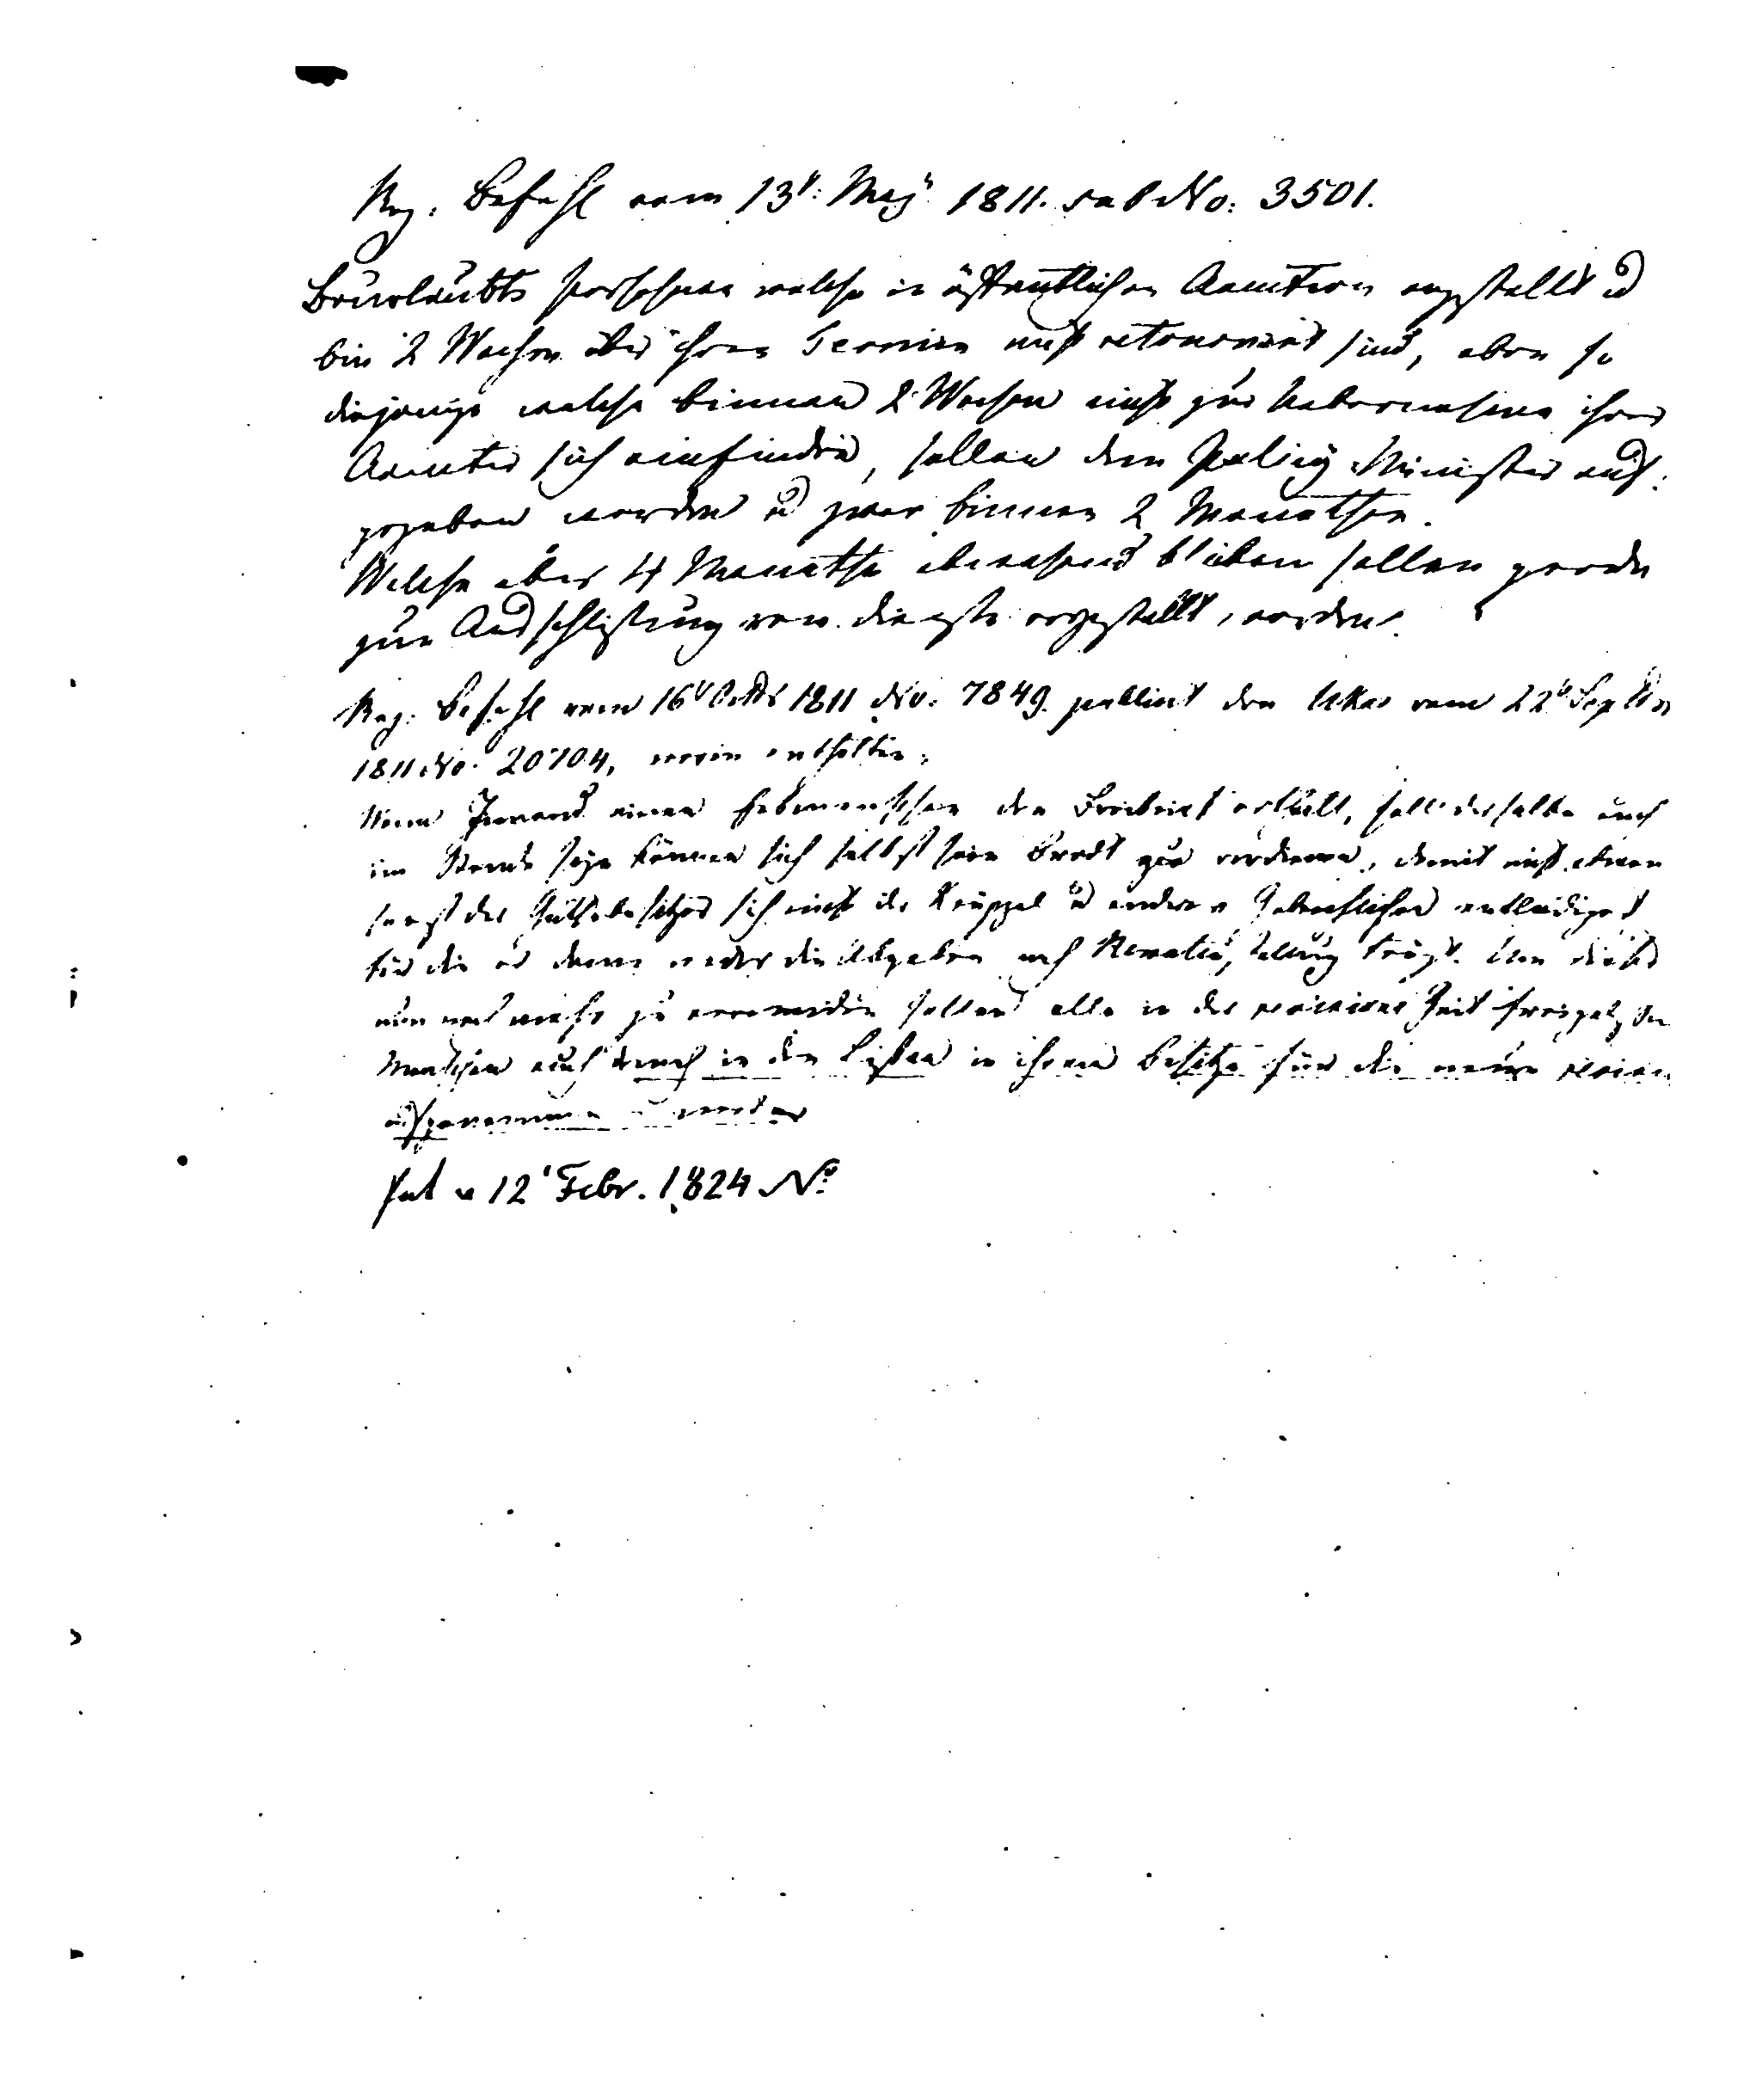 Reg: Befehl vom 13t: May 1811. sub No: 3501.
Beurlaubte Persohnen welche in öffentlichen Aemtern angestellt u
bis 2 Wochen über ihren Termin nicht retourniert sind, eben so
diejenige welche binnen 2 Wochen nicht zur Uebernahme ihres
Aemter sich einfinden, sollen dem Policey Minister auf:
gegeben werden u zwar binnen 2 Monathen.
Welche über 4 Monathe abwesend bleiben sollen
zur Ausschließung vom Dienste vorgestellt werden.
Reg: Befehl vom 16t Octbr 1811 No. 7849. publicirt den Ukas vom 22t Septbr
1811 No. 20704, worin enthalten:
Wenn Jemand einen Erbmenschen den Freibrief ertheilt, soll derselbe auch
im Stande seyn können sich selbst sein Brodt zu verdienen, damit nicht
sonst der Guthsbesitzer sich nicht der Krüppel u anderer Gebrechlicher entlediget
für die er dann weder die Abgaben noch trägt. Um dieses
nun mehr zu vermeiden sollen alle in der revisions Zeit freigelaßene
Menschen auch noch in den Listen in ihrem Besitze für die neue revision
aufgenommen werden
Pat v 12t Febr. 1824 No